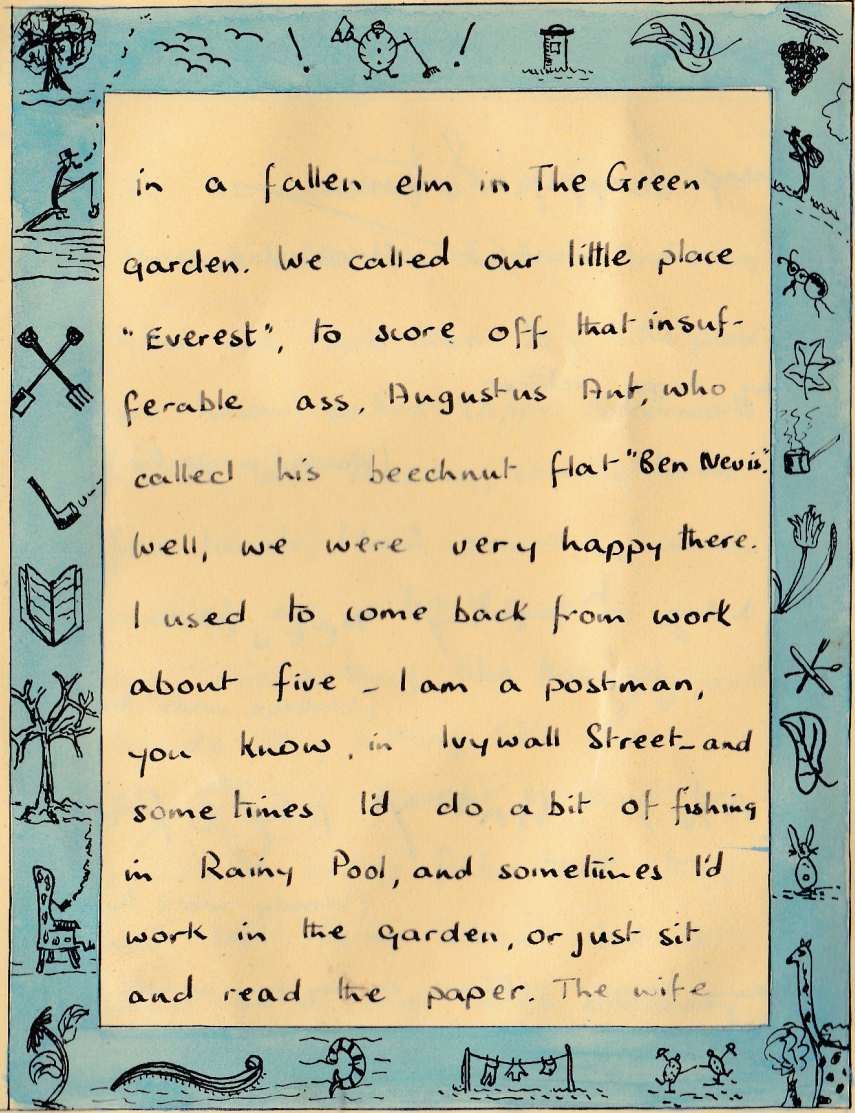 in a fallen elm in The Green
garden. We called our little place
"Everest", to score off that insuf-
ferable ass, Augustus Ant, who
called his beechnut flat "Ben Nevis".
Well, we were very happy there.
I used to come back from work
about five - I am a postman,
you know, in Ivywall Street - and
sometimes I'd do a bit of fishing
in Rainy Pool, and sometimes I'd
work in the garden, or just sit
and read the paper. The wife